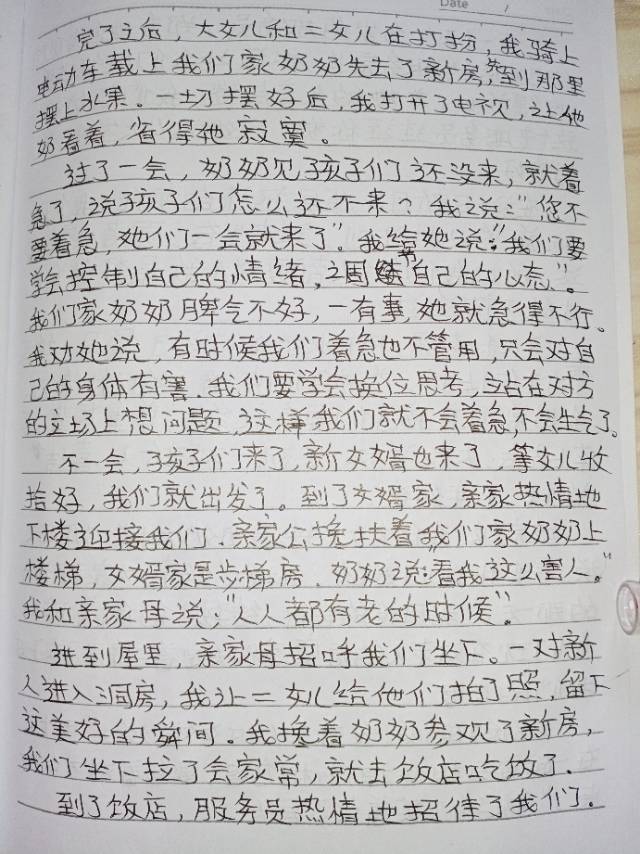 Date /
完了之后，大女儿和二女儿在打扮，我骑上
电动车载上我们家奶奶先去了新房，先到那里
摆上水果。一切摆好后，我打开了电视，让他
奶看着，省得他寂寞。
过了一会，奶奶见孩子们还没来，就着
急了，说孩子们怎么还不来？我说："您不
要着急，她们一会就来了"。我给她说："我们要
学会控制自己的情绪，调节自己的心态"。
我们家奶奶脾气不好，一有事，她就急得不行。
我劝她说，有时候我们着急也不管用，只会对自
己的身体有害．我们要学会换位思考，站在对方
的立场上想问题，这样我们就不会着急，不会生气了。
不一会，孩子们来了，新女婿也来了，等女儿收
拾好，我们就出发了。到了女婿家，亲家热情地
下楼迎接我们．亲家公搀扶着我们家奶奶上
楼梯，女婿家是步梯房．奶奶说："看我这么害人。"
我和亲家母说："人人都有老的时候"。
进到屋里，亲家母招呼我们坐下。一对新
人进入洞房，我让二女儿给他们拍了照，留下
这美好的瞬间。我搀着奶奶参观了新房，
我们坐下拉了会家常，就去饭店吃饭了．
到了饭店，服务员热情地招待了我们。